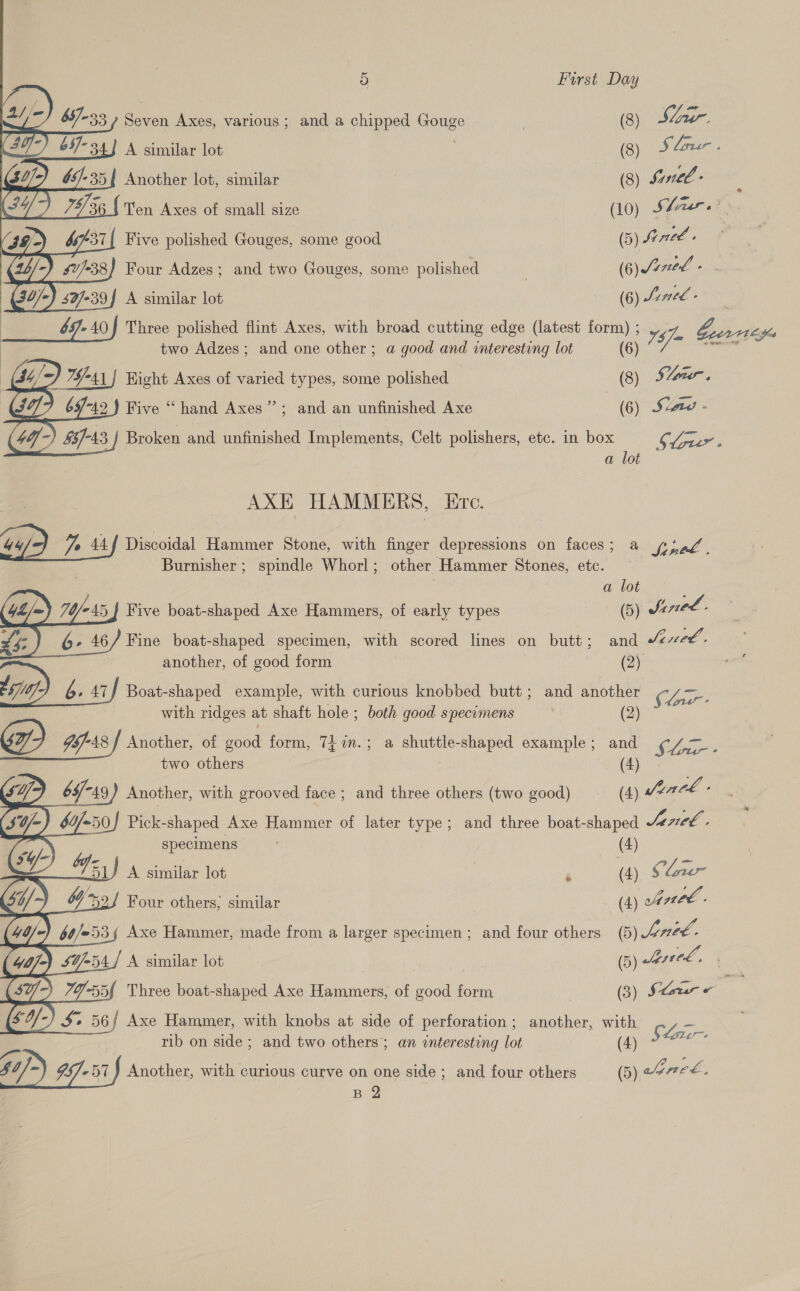 5 First Day
33 Seven Axes, various; and a chipped Gouge (8)
34 A similar lot (8)
35 Another lot, similar (8)
36 Ten Axes of small size (10)
37 Five polished Gouges, some good (5)
38 Four Adzes; and two Gouges, some polished (6)
39 A similar lot (6)
40 Three polished flint Axes, with broad cutting edge (latest form);
two Adzes; and one other; a good and interesting lot (6)
41 Eight Axes of varied types, some polished (8)
42 Five “hand Axes”; and an unfinished Axe (6)
43 Broken and unfinished Implements, Celt polishers, etc. in box
a lot
AXE HAMMERS, Etc.
44 Discoidal Hammer Stone, with finger depressions on faces; a
Burnisher; spindle Whorl; other Hammer Stones, etc.
a lot
45 Five boat-shaped Axe Hammers, of early types (5)
46 Fine boat-shaped specimen, with scored lines on butt; and
another, of good form (2)
47 Boat-shaped example, with curious knobbed butt; and another
with ridges at shaft hole; both good specimens (2)
48 Another, of good form, 7¼ in.; a shuttle-shaped example; and
two others (4)
49 Another, with grooved face; and three others (two good) (4)
50 Pick-shaped Axe Hammer of later type; and three boat-shaped
specimens (4)
51 A similar lot (4)
52 Four others, similar (4)
53 Axe Hammer, made from a larger specimen; and four others (5)
54 A similar lot (5)
55 Three boat-shaped Axe Hammers, of good form (3)
56 Axe Hammer, with knobs at side of perforation; another, with
rib on side; and two others; an interesting lot (4)
57 Another, with curious curve on one side; and four others (5)
B 2